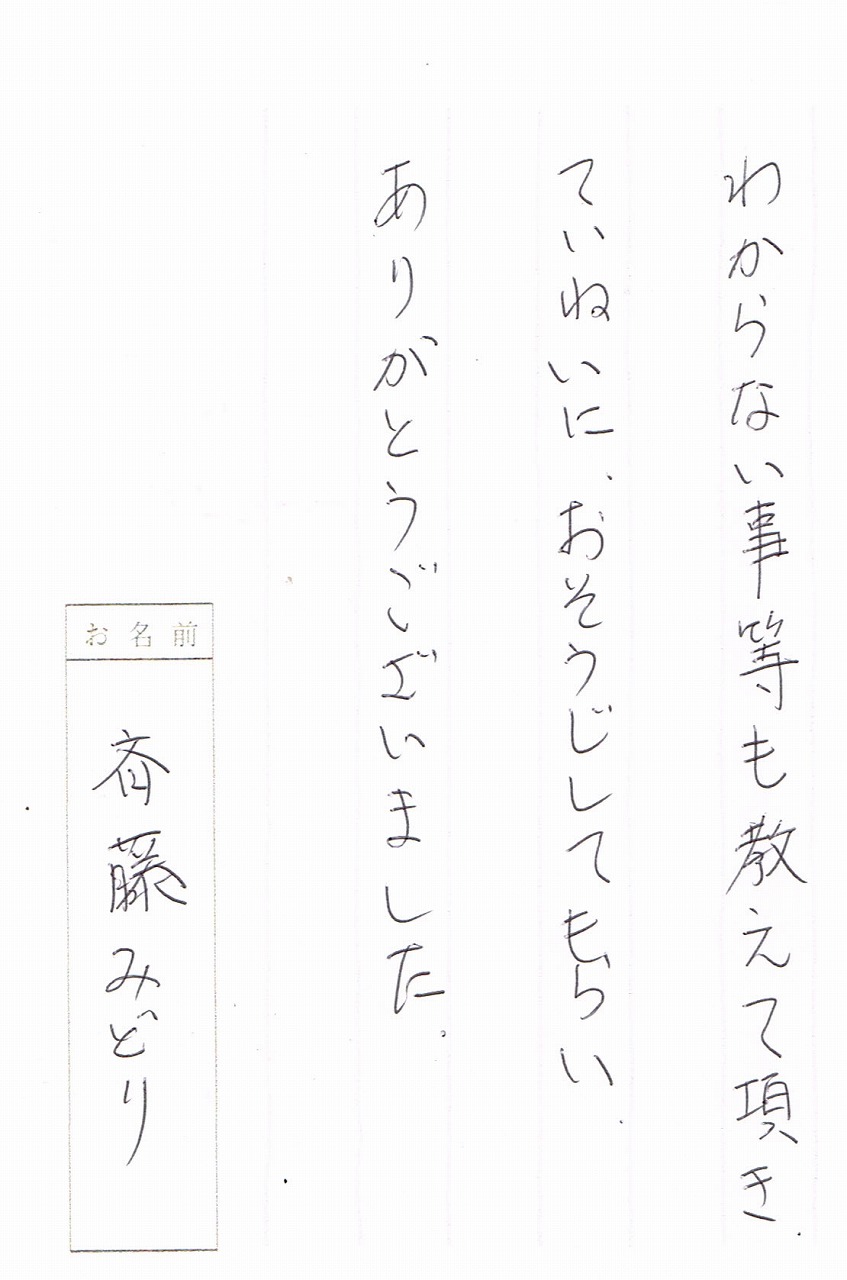 わからない事等も教えて項き、
ていねいに、おそうじしてもらい、
ありがとうございました。
お名前
斉藤みどり